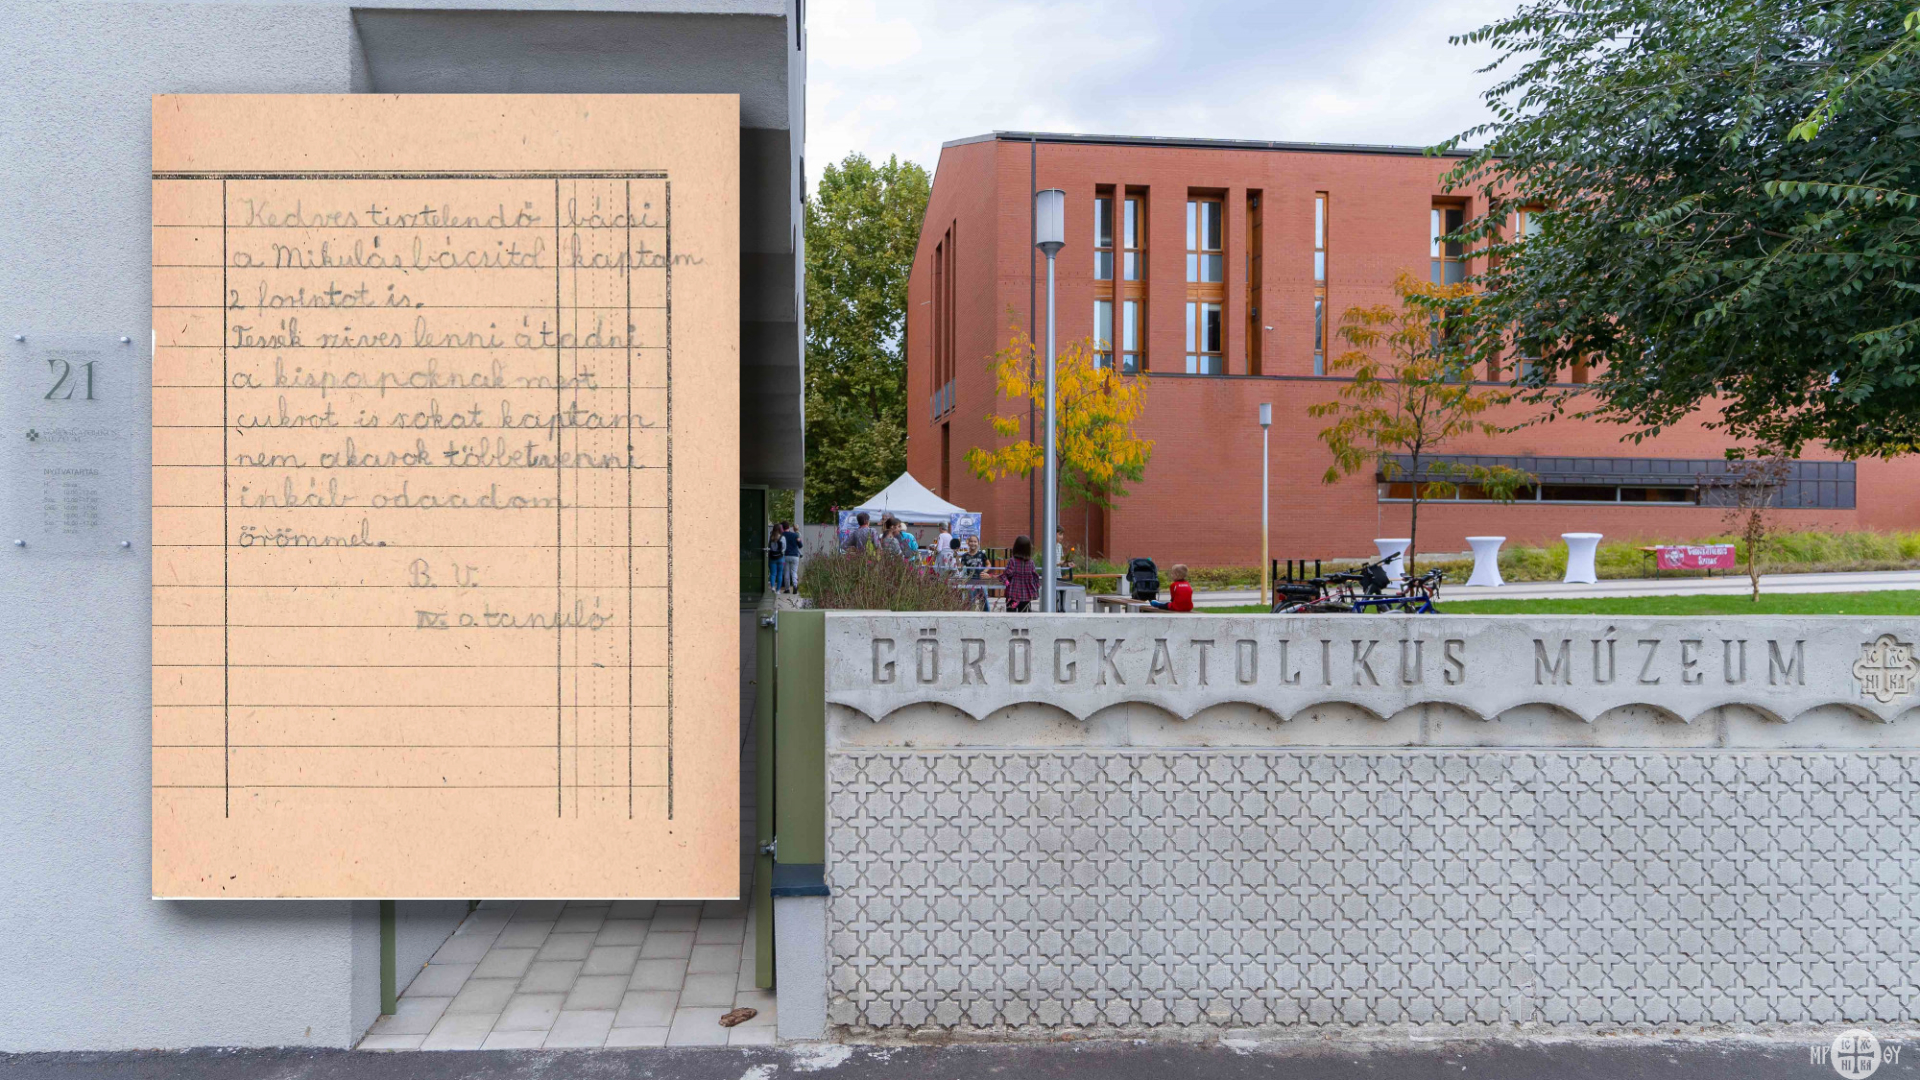 Kedves tisztelendő bácsi
a Mikulás bácsitól kaptam
2 forintot is.
Tessék szives lenni átadni
a kispapoknak mert
cukrot is sokat kaptam
nem akarok többet venni
inkáb odaadom
örömmel.
B. V.
IV. o. tanuló
21
NYITVATARTÁS
GÖRÖGKATOLIKUS MÚZEUM
IC XC
НІ КА
ΜΡ ΘΥ
IC XC
НІ КА